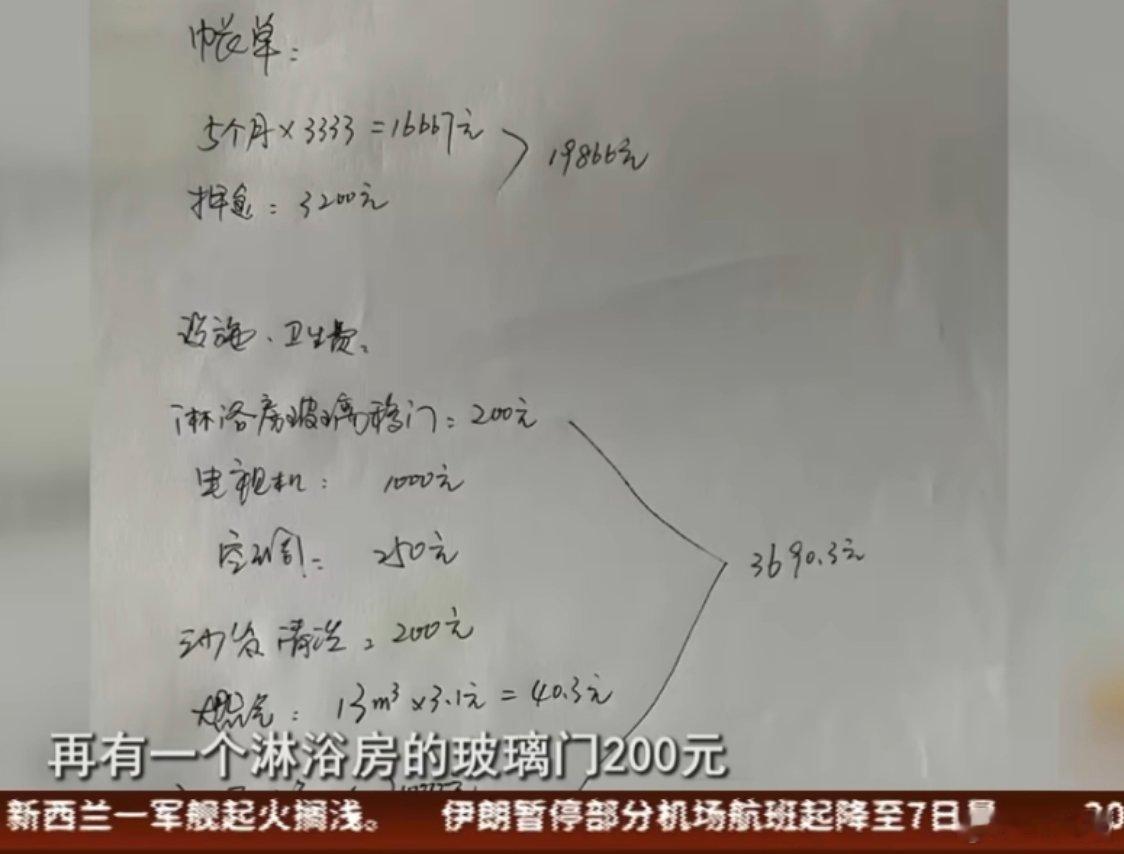 帐单：
5个月×3333=16667元
19866元
押金：3200元
设施、卫生费。
淋浴房玻璃移门：200元
电视机：1000元
空调：250元
3690.3元
沙发清洗：200元
燃气：13m³×3.1元=40.3元
再有一个淋浴房的玻璃门200元
新西兰一军舰起火搁浅。 伊朗暂停部分机场航班起降至7日晨 20